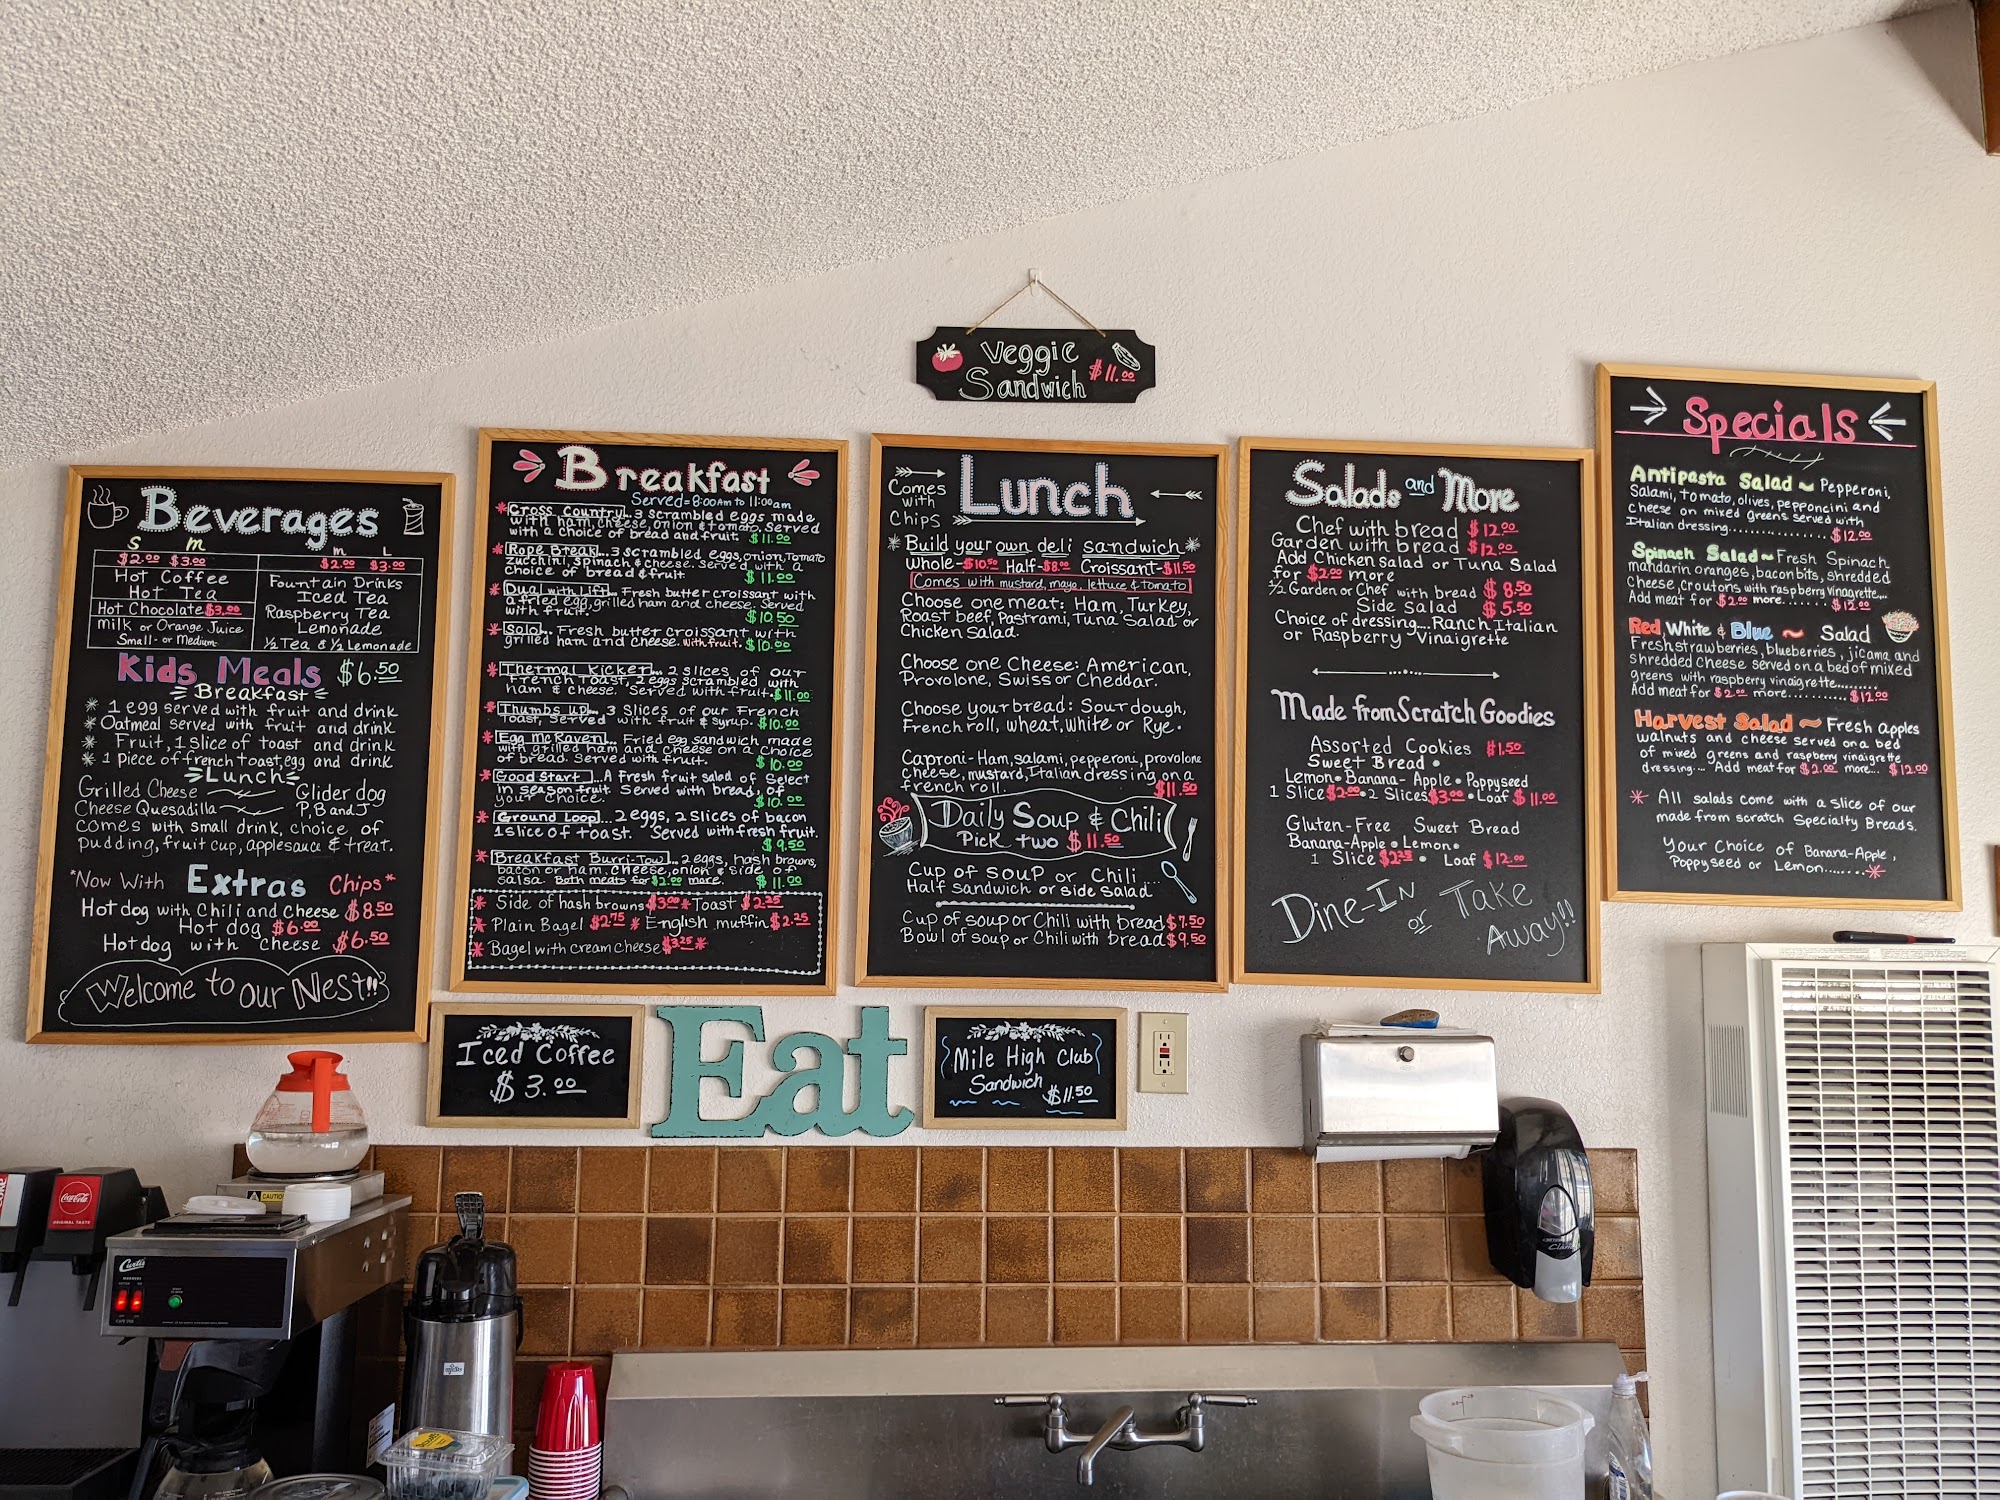 Veggie
Sandwich $11.00
Beverages
S M
$2.00 $3.00
Hot Coffee
Hot Tea
Hot Chocolate $3.00
milk or Orange Juice
Small or Medium
M L
$2.00 $3.00
Fountain Drinks
Iced Tea
Raspberry Tea
Lemonade
½ Tea & ½ Lemonade
Kids Meals $6.50
Breakfast
* 1 egg served with fruit and drink
* Oatmeal served with fruit and drink
* Fruit, 1 slice of toast and drink
* 1 Piece of french toast, egg and drink
Lunch
Grilled Cheese Glider dog
Cheese Quesadilla P,B and J
comes with small drink, choice of
pudding, fruit cup, applesauce & treat.
*Now With Extras Chips*
Hot dog with Chili and Cheese $8.50
Hot dog $6.00
Hot dog with Cheese $6.50
Welcome to our Nest!!
Breakfast
Served = 8:00am to 11:00am
* Cross Country... 3 scrambled eggs made
with ham, cheese, onion & tomato. Served
with a choice of bread and fruit. $11.00
* Rope Break... 3 scrambled eggs, onion, Tomato
zucchini, spinach & cheese. Served with a
choice of bread & fruit $11.00
* Dual with Lift... Fresh butter croissant with
a fried egg, grilled ham and cheese. Served
with fruit. $10.50
* Solo... Fresh butter croissant with
grilled ham and cheese. With fruit. $10.00
* Thermal Kicker... 2 slices of our
French Toast, 2 eggs scrambled with
ham & cheese. Served with fruit. $11.00
* Thumbs up... 3 Slices of our French
Toast, Served with fruit & syrup. $10.00
* Egg McRaven... Fried egg sandwich made
with grilled ham and cheese on a Choice
of bread. Served with fruit. $10.00
* Good Start ...A Fresh fruit salad of Select
in season fruit. Served with bread, of
your choice. $10.00
* Ground Loop... 2 eggs, 2 slices of bacon
1 slice of toast. Served with fresh fruit.
$9.50
* Breakfast Burri-Tow... 2 eggs, hash browns,
bacon or ham, cheese, onion & side of
salsa. Both meats for $2.00 more. $11.00
* Side of hash browns $3.00 * Toast $2.25
* Plain Bagel $2.75 * English muffin $2.25
* Bagel with Cream Cheese $3.25 *
Comes
with
Chips
Lunch
* Build your own deli sandwich *
Whole-$10.50 Half-$8.00 Croissant-$11.50
Comes with mustard, mayo, lettuce & tomato
Choose one meat: Ham, Turkey,
Roast beef, Pastrami, Tuna Salad or
Chicken Salad.
Choose one Cheese: American,
Provolone, Swiss or Cheddar.
Choose your bread: Sourdough,
French roll, wheat, White or Rye.
Caproni-Ham, salami, pepperoni, provolone
cheese, mustard, Italian dressing on a
french roll. $11.50
Daily Soup & Chili
Pick two $11.50
Cup of soup or Chili...
Half sandwich or side Salad
Cup of soup or Chili with bread $7.50
Bowl of soup or Chili with bread $9.50
Salads and More
Chef with bread $12.00
Garden with bread $12.00
Add Chicken salad or Tuna Salad
for $2.00 more
½ Garden or Chef with bread $8.50
Side Salad $5.50
Choice of dressing... Ranch Italian
or Raspberry Vinaigrette
Made from Scratch Goodies
Assorted Cookies $1.50
Sweet Bread •
Lemon • Banana-Apple • Poppyseed
1 Slice $2.00 • 2 Slices $3.00 • Loaf $11.00
Gluten-Free Sweet Bread
Banana-Apple • Lemon •
1 Slice $2.25 • Loaf $12.00
Dine-In or Take Away!!
Specials
Antipasta Salad ~ Pepperoni,
Salami, tomato, olives, pepponcini and
cheese on mixed greens served with
Italian dressing............ $12.00
Spinach Salad ~ Fresh Spinach
mandarin oranges, bacon bits, shredded
Cheese, croutons with raspberry vinaigrette...
Add meat for $2.00 more....... $12.00
Red, White & Blue ~ Salad
Fresh strawberries, blueberries, jicama and
shredded cheese served on a bed of mixed
greens with raspberry vinaigrette.........
Add meat for $2.00 more.......... $12.00
Harvest Salad ~ Fresh apples
walnuts and cheese served on a bed
of mixed greens and raspberry vinaigrette
dressing... Add meat for $2.00 more... $12.00
* All salads come with a slice of our
made from scratch Specialty Breads.
Your Choice of Banana-Apple,
Poppyseed or Lemon......*
Iced Coffee
$3.00
Eat
Mile High Club
Sandwich
$11.50
Coca-Cola
ORIGINAL TASTE
CAUTION
Curtis